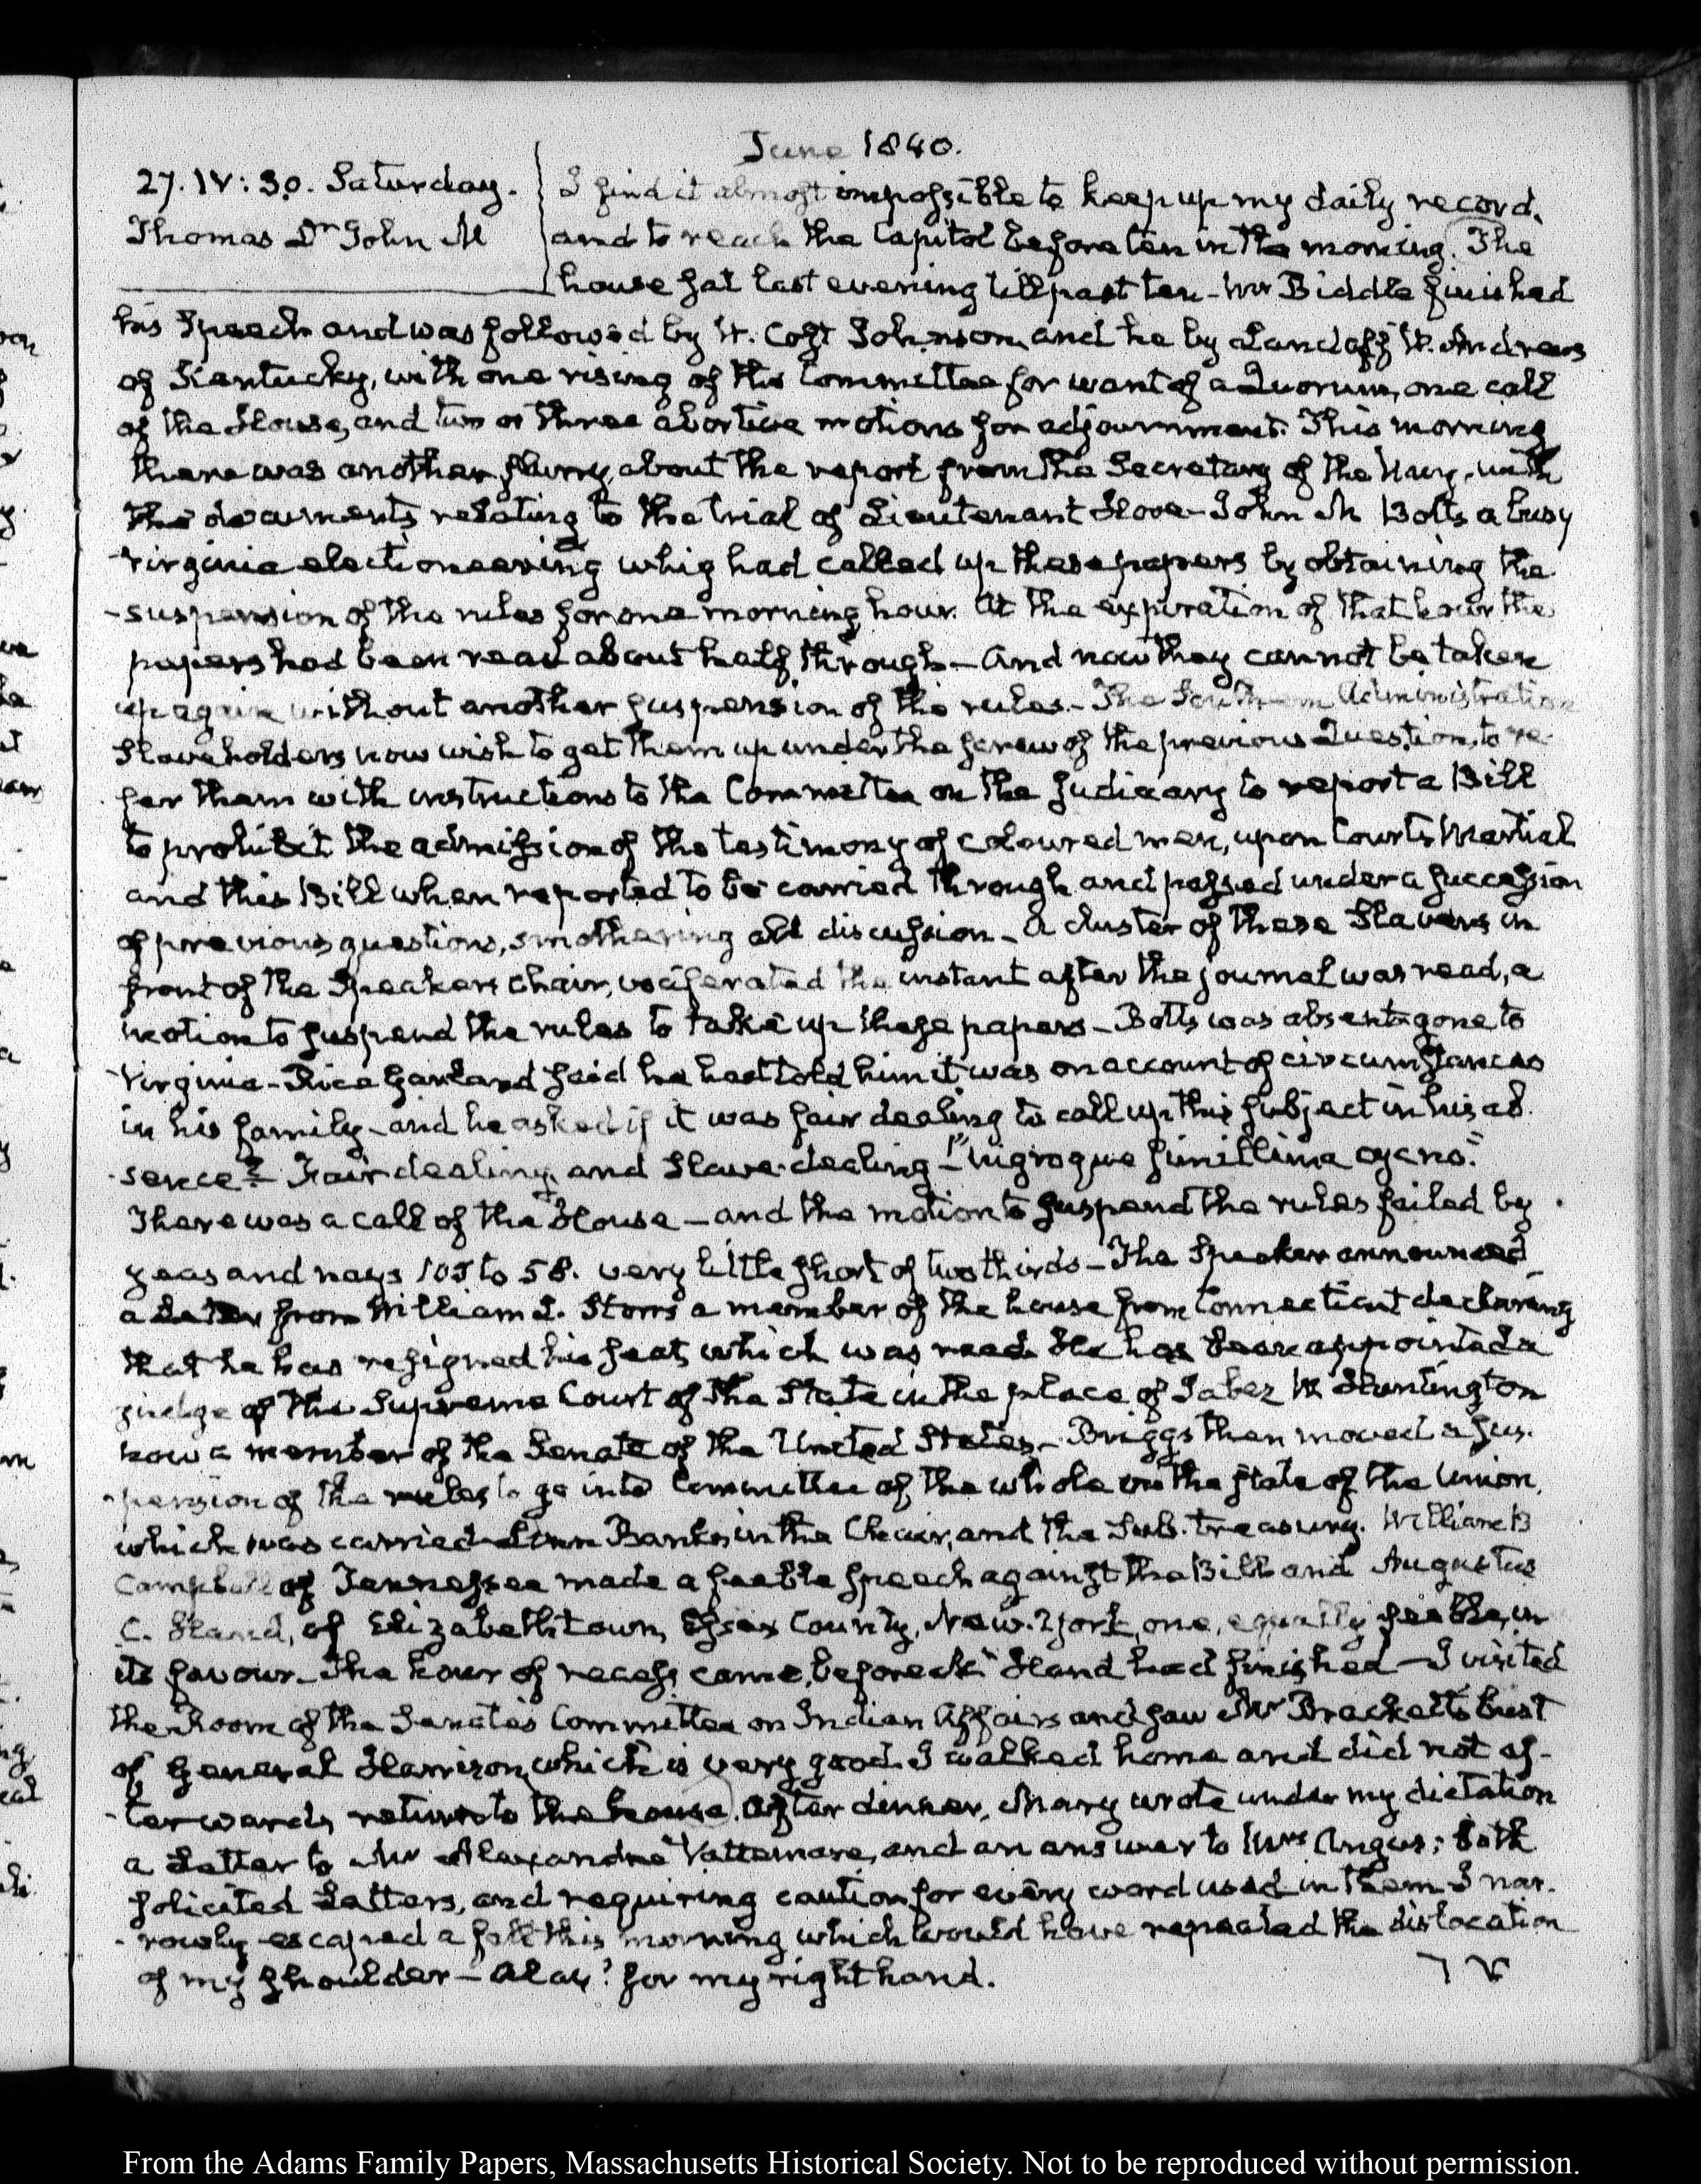 June 1840.
27. IV: 30. Saturday.
Thomas Dr John M
I find it almost impossible to keep up my daily record,
and to reach the Capitol before ten in the morning. The
house sat last evening till past ten - Mr Biddle finished
his Speech and was followed by W. Cost Johnson, and he by Landaff W. Andrews
of Kentucky, with one rising of the Committee for want of a Quorum, one call
of the House, and two or three abortive motions for adjournment. This morning
there was another flurry, about the report from the Secretary of the Navy, with
the documents relating to the trial of Lieutenant Hooe - John M Botts a busy
Virginia electioneering whig had called up these papers by obtaining the
suspension of the rules for one morning hour. At the expiration of that hour the
papers had been read about half through - And now they cannot be taken
up again without another suspension of the rules - The Southern Administration
Slave holders now wish to get them up under the screw of the previous Question, to re-
fer them with instructions to the Committee on the Judiciary to report a Bill
to prohibit the admission of the testimony of coloured men, upon Courts Martial
and this Bill when reported to be carried through and passed under a succession
of previous questions, smothering all discussion - A cluster of these Slavers in
front of the Speaker's chair, vociferated the instant after the journal was read, a
motion to suspend the rules to take up these papers - Botts was absent gone to
Virginia - Rice Garland said he had told him it was on account of circumstances
in his family - and he asked if it was fair dealing to call up this subject in his ab-
sence? - Fair dealing, and Slave-dealing - "nigroque simillima cycno."
There was a call of the House - and the motion to suspend the rules failed by
yeas and nays 105 to 58. very little short of two thirds - The Speaker announced
a Letter from William L. Storrs a member of the house from Connecticut declaring
that he has resigned his seat, which was read. He has been appointed a
judge of the Supreme Court of the State in the place of Jabez W. Huntington
now a member of the Senate of the United States - Briggs then moved a sus-
pension of the rules to go into Committee of the whole on the state of the Union,
which was carried - Linn Banks in the Chair, and the Sub-treasury. William B
Campbell of Tennessee made a feeble speech against the Bill and Augustus
C. Hand, of Elizabethtown, Essex County, New-York, one, equally feeble, in
its favour - The hour of recess came, before Hand had finished - I visited
the Room of the Senate's Committee on Indian Affairs and saw Mr Brackett's bust
of General Harrison, which is very good. I walked home and did not af-
terwards return to the house. After dinner, Mary wrote under my dictation
a Letter to Mr Alexandre Vattemare, and an answer to Mrs Angus; both
solicited Letters, and requiring caution for every word used in them. I nar-
rowly escaped a fall this morning which would have repeated the dislocation
of my shoulder - Alas! for my right hand.
From the Adams Family Papers, Massachusetts Historical Society. Not to be reproduced without permission.